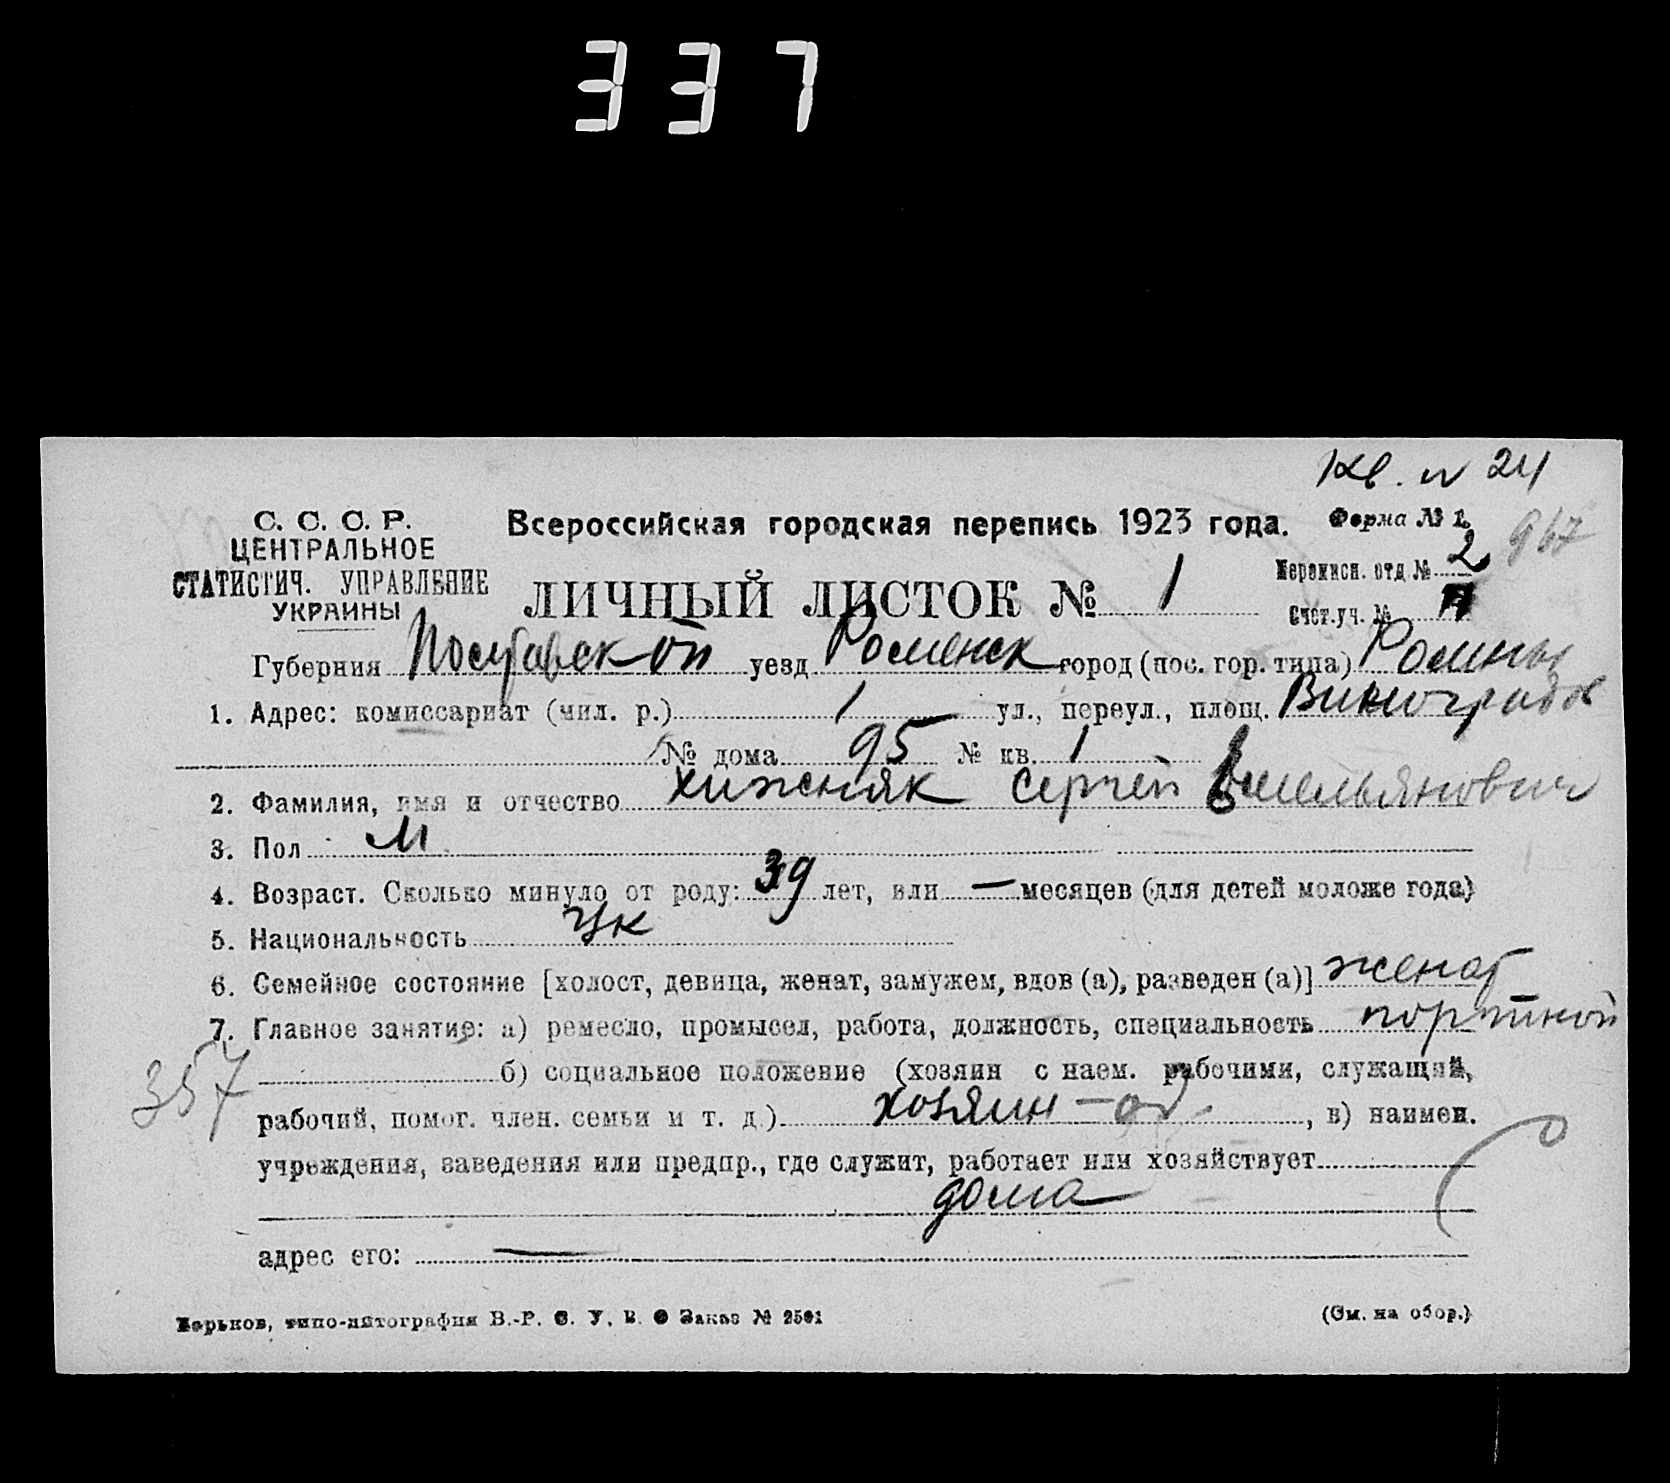 337
Кв. № 24
С. С. С. Р.
ЦЕНТРАЛЬНОЕ
СТАТИСТИЧ. УПРАВЛЕНИЕ
УКРАИНЫ
Всероссийская городская перепись 1923 года.
Форма № 1.
967
ЛИЧНЫЙ ЛИСТОК № 1
Переписн. отд № 2
Счет.уч. №
Губерния Полтавской уезд Роменск город (пос. гор. типа) Ромны
1. Адрес: комиссариат (мил. р.) 1 ул., переул., площ. Виноградов
№ дома 95 № кв. 1
2. Фамилия, имя и отчество Хижняк Сергей Емельянович
3. Пол М
4. Возраст. Сколько минуло от роду: 39 лет, или — месяцев (для детей моложе года)
5. Национальность Ук
6. Семейное состояние [холост, девица, женат, замужем, вдов (а), разведен (а)] женат
7. Главное занятие: а) ремесло, промысел, работа, должность, специальность портной
357
б) социальное положение (хозяин с наем. рабочими, служащий,
рабочий, помог. член. семьи и т. д.) хозяин - од , в) наимен.
учреждения, заведения или предпр., где служит, работает или хозяйствует
дома
адрес его: —
Харьков, типо-литография В.-Р. С. У. В. О Заказ № 2501
(См. на обор.)